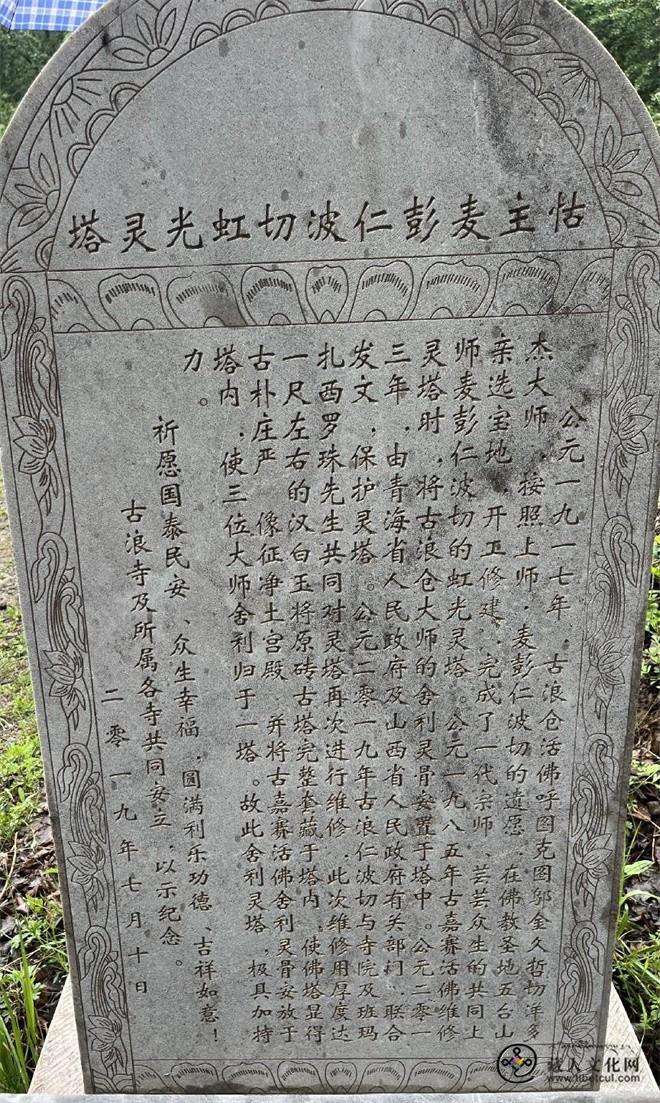 怙主麦彭仁波切虹光灵塔
公元一九一七年，古浪仓活佛呼图克图邬金久哲切洋多
杰大师，按照上师，麦彭仁波切的遗愿，在佛教圣地五台山
亲选宝地，开工修建，完成了一代宗师、芸芸众生的共同上
师麦彭仁波切的虹光灵塔。公元一九八五年古嘉赛活佛维修
灵塔时，将古浪仓大师的舍利灵骨安置于塔中。公元二零一
三年，由青海省人民政府及山西省人民政府有关部门，联合
发文，保护灵塔。公元二零一九年古浪仁波切与寺院及班玛
扎西罗珠先生共同对灵塔再次进行维修，此次维修用厚度达
一尺左右的汉白玉将原砖古塔完整套藏于塔内，使佛塔显得
古朴庄严，像征净土宫殿，并将古嘉赛活佛舍利灵骨安放于
塔内，使三位大师舍利归于一塔。故此舍利灵塔，极具加持
力。
祈愿国泰民安、众生幸福，圆满利乐功德、吉祥如意！
古浪寺及所属各寺共同安立，以示纪念。
二零一九年七月十日
藏人文化网
www.tibetcul.com